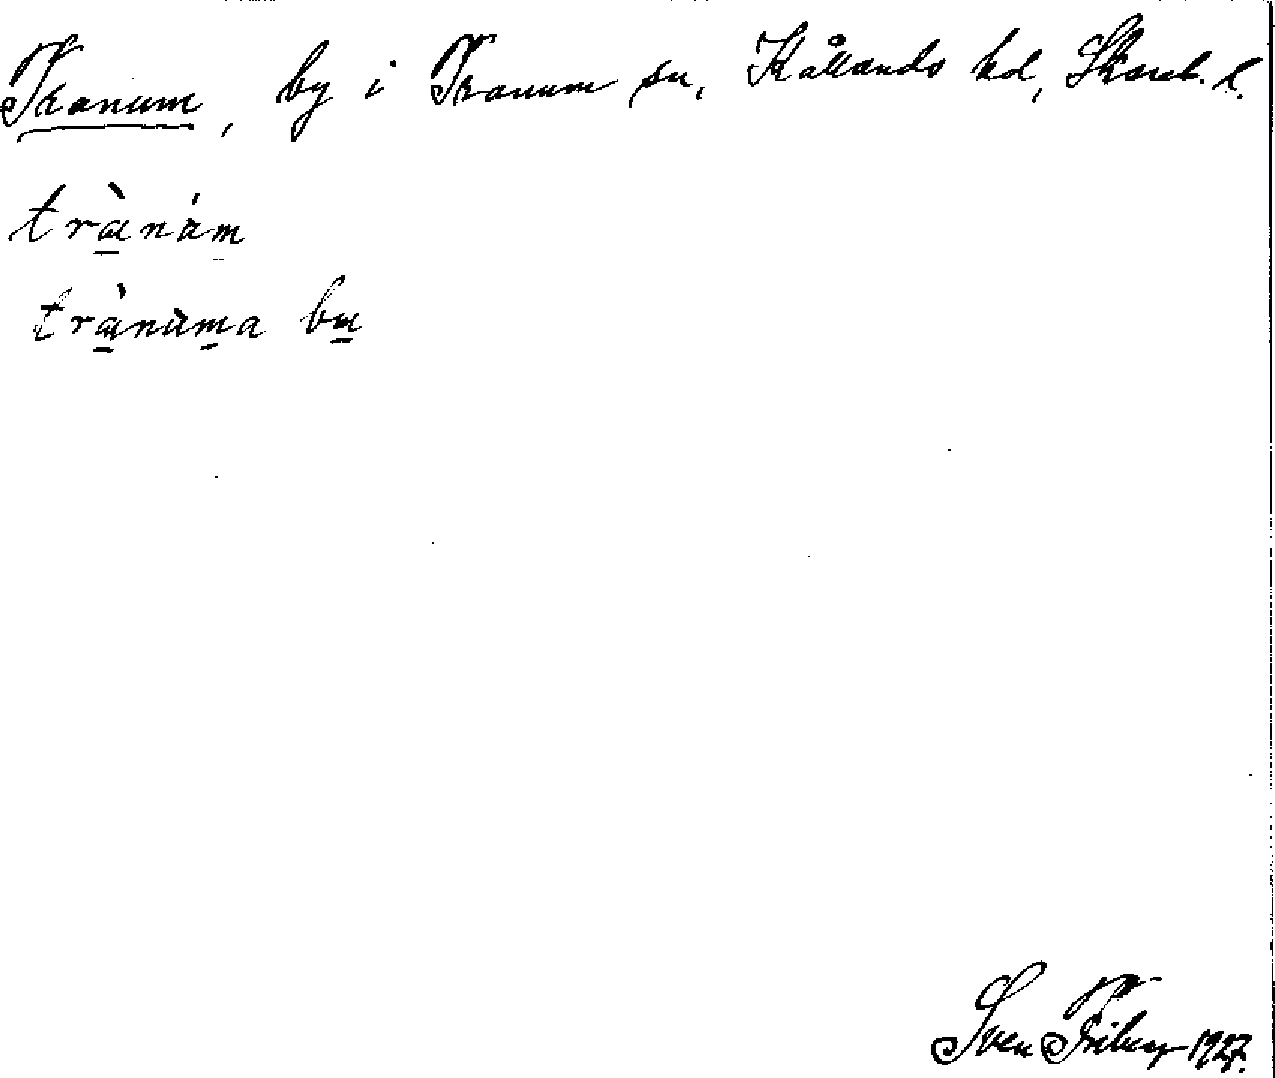 Tranum, by i Tranum sn, Kållands hd, Skarab. l.
trànám
trànàma by
Sven Friberg 1927.